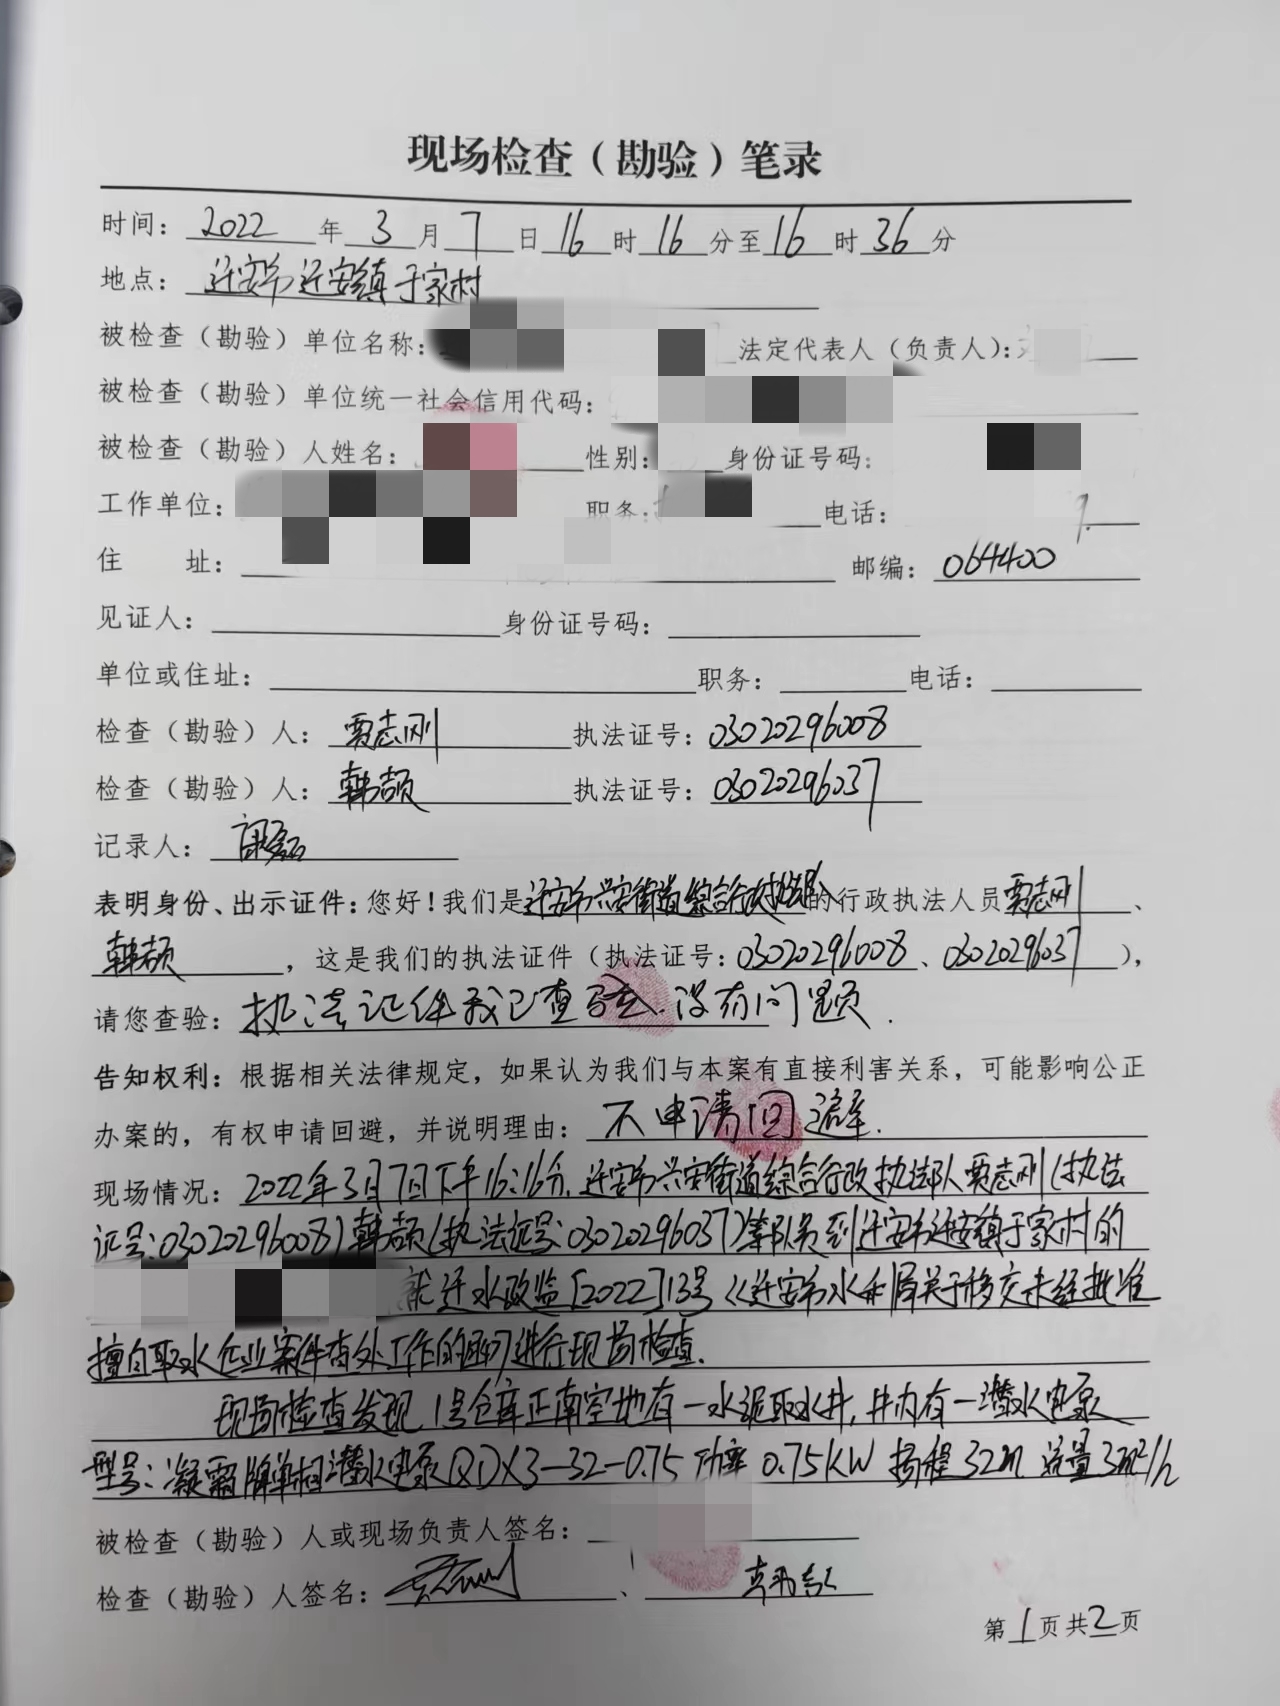 现场检查（勘验）笔录
时间：2022年3月7日16时16分至16时36分
地点：迁安市迁安镇于家村
被检查（勘验）单位名称： 法定代表人（负责人）：
被检查（勘验）单位统一社会信用代码：
被检查（勘验）人姓名： 性别： 身份证号码：
工作单位： 职务： 电话：
住 址： 邮编：064400
见证人： 身份证号码：
单位或住址： 职务： 电话：
检查（勘验）人：贾志刚 执法证号：03020296008
检查（勘验）人：韩颉 执法证号：03020296037
记录人：
表明身份、出示证件：您好！我们是迁安市兴安街道综合行政执法队的行政执法人员贾志刚、
韩颉，这是我们的执法证件（执法证号：03020296008、03020296037），
请您查验：执法证件我已查验.没有问题.
告知权利：根据相关法律规定，如果认为我们与本案有直接利害关系，可能影响公正
办案的，有权申请回避，并说明理由：不申请回避.
现场情况：2022年3月7日下午16:16分，迁安市兴安街道综合行政执法队贾志刚（执法
证号：03020296008）韩颉（执法证号：03020296037）等队员到迁安市迁安镇于家村的
就迁水政监[2022]13号《迁安市水利局关于移交未经批准
擅自取水企业案件查处工作的函》进行现场检查.
现场检查发现1号仓库正南空地有一水泥取水井，井内有一潜水电泵
型号：凝霜牌单相潜水电泵QDX3-32-0.75 功率0.75KW 扬程32m 流量3m³/h
被检查（勘验）人或现场负责人签名：
检查（勘验）人签名：贾志刚、韩颉
第1页共2页